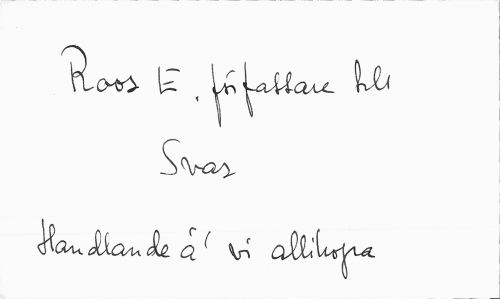 Roos E. författare
Svar
Handlande ä' vi allihopa